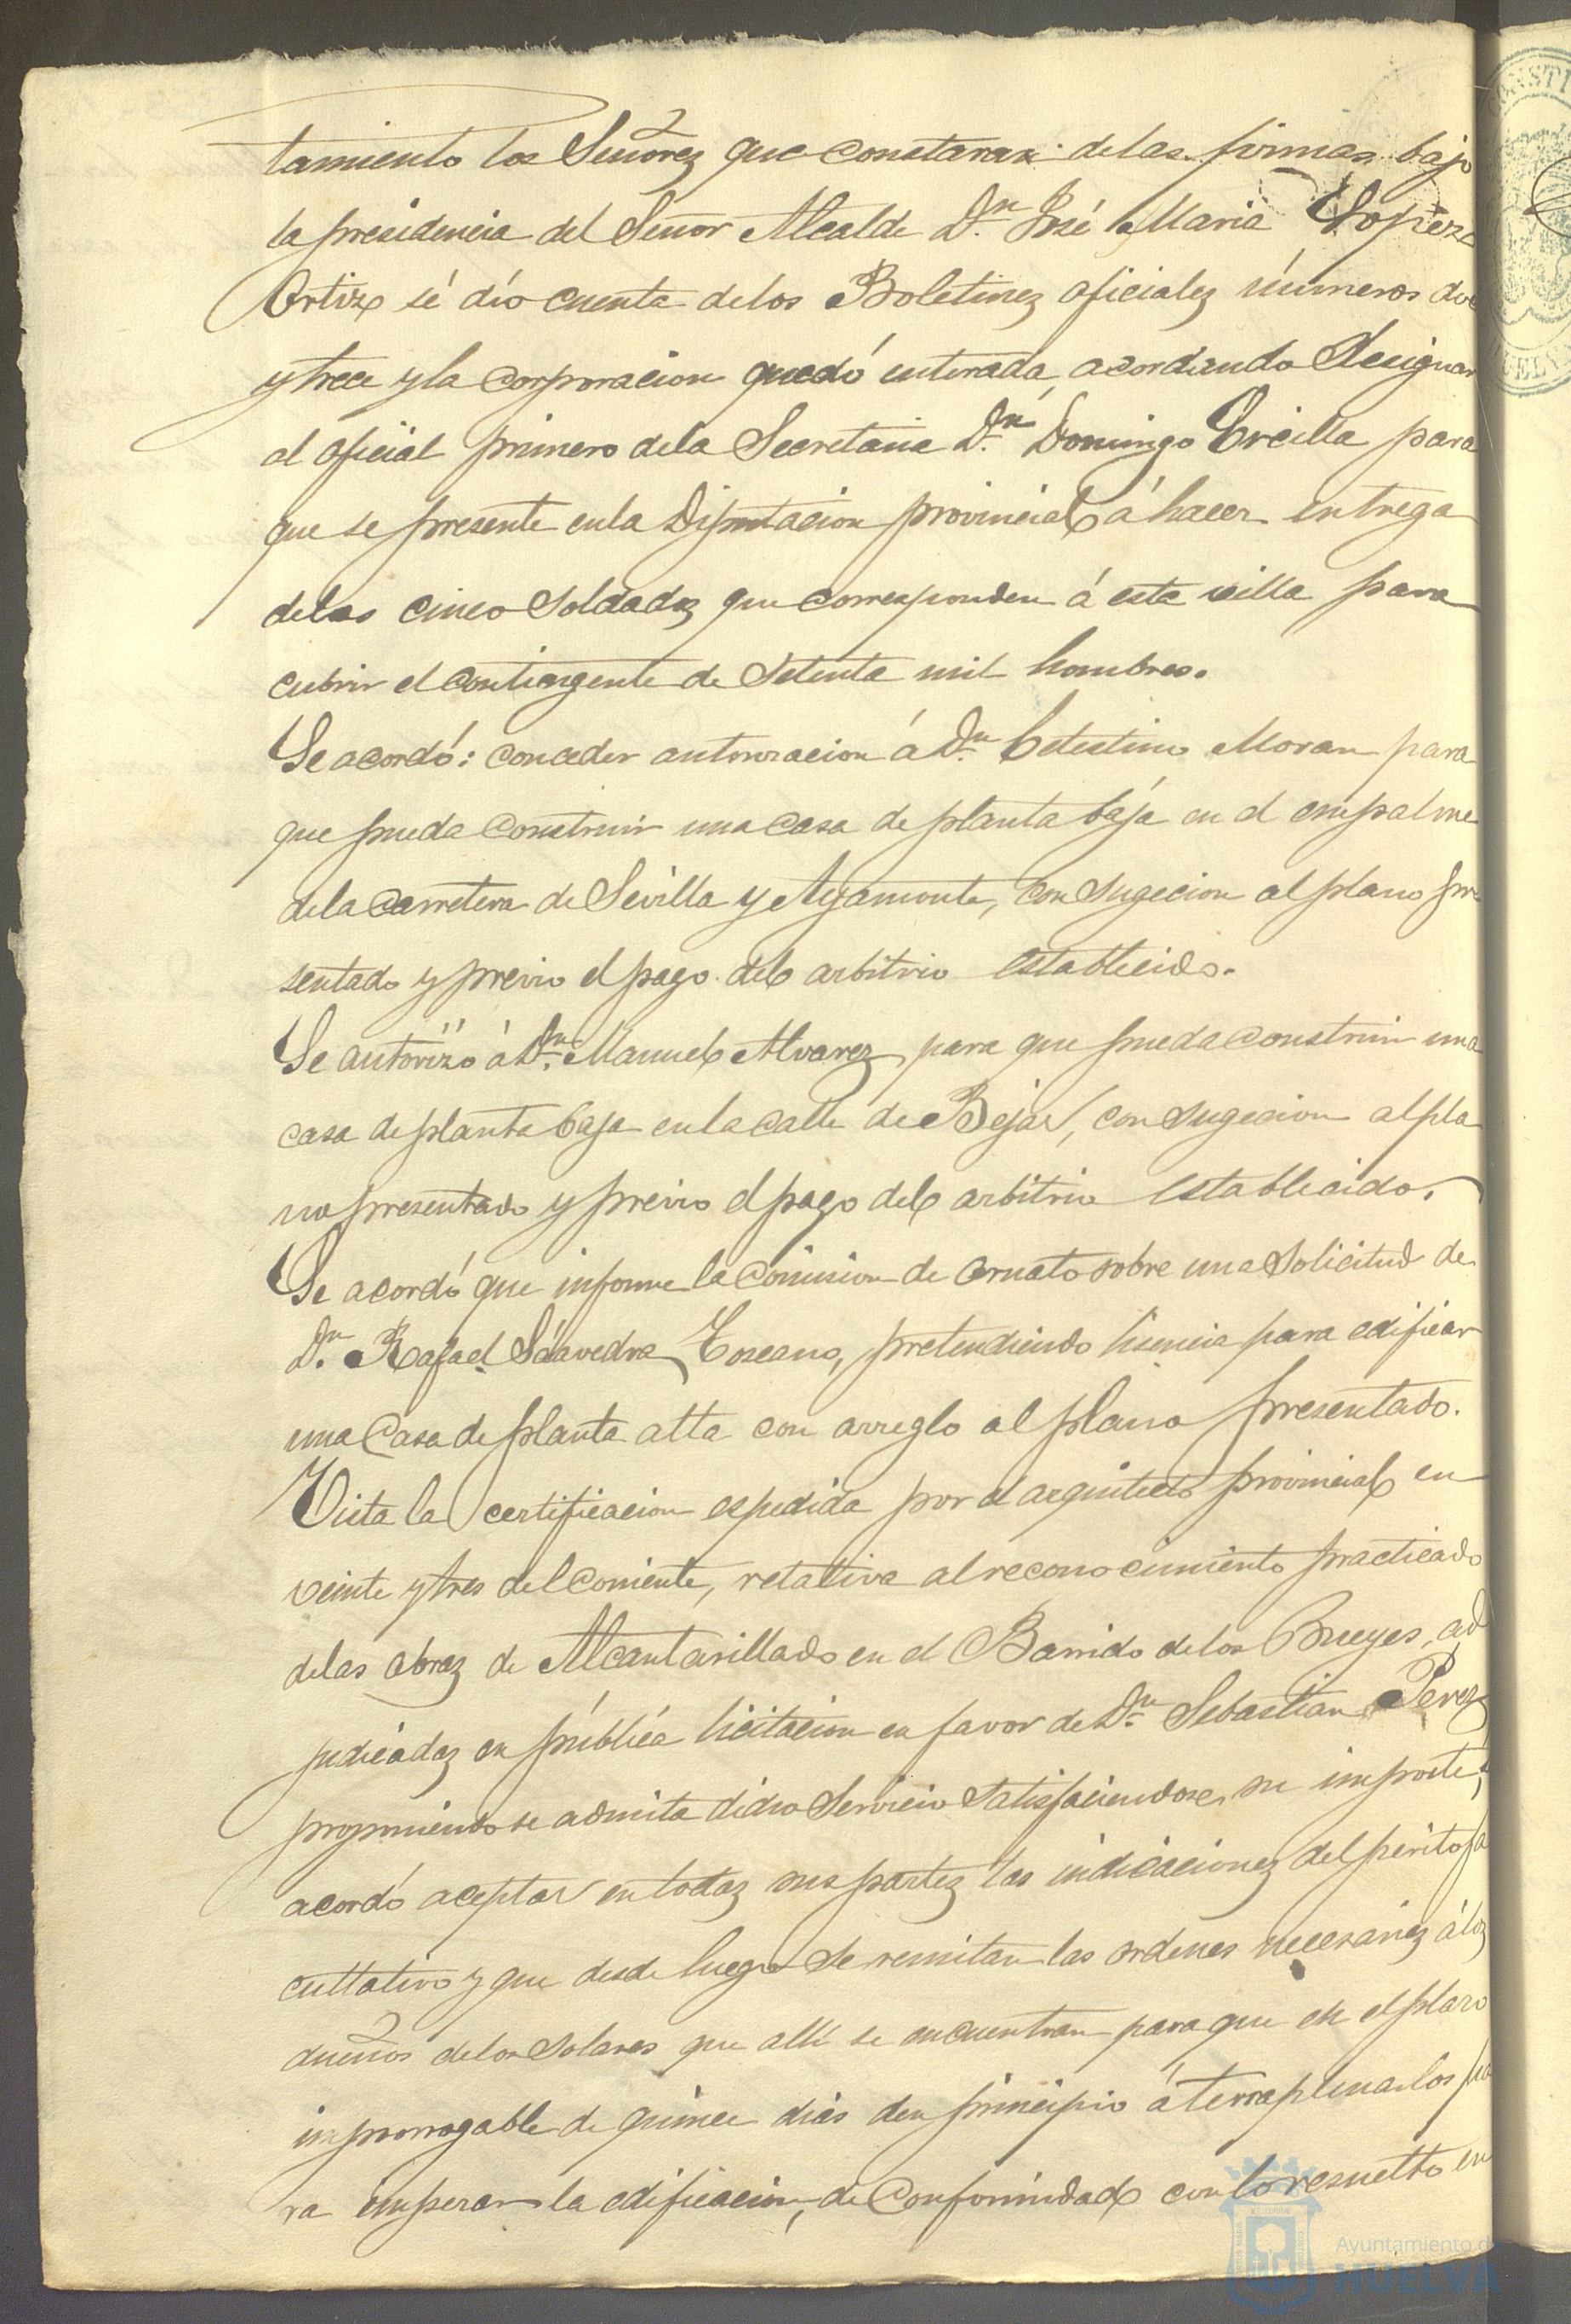 tamiento los Señores que constaran de las firmas bajo
la presidencia del Señor Alcalde D.n José Maria Lopez
Ortiz sé dío cuenta de los Boletines oficiales números doce
y trece y la corporacion quedó enterada, acordando designar
al oficial primero de la Secretaria D.n Domingo Ercilla para
que se presente en la Diputacion provincial á hacer entrega
de los cinco Soldados que corresponden á esta villa para
cubrir el contingente de Setenta mil hombres.
Se acordó: conceder autorizacion á D.n Celestino Moran para
que pueda construir una casa de planta bája en el empalme
de la carretera de Sevilla y Ayamonte, con sugecion al plano pre
sentado y previo el pago del arbitrio establecido.
Se autorizó á D.n Manuel Alvarez para que pueda construir una
casa de planta baja en la calle de Bejar, con sugecion al pla
no presentado y previo el pago del arbitrio establecido.
Se acordó que informe la Comision de Ornato sobre una Solicitud de
D.n Rafael Sáavedra Toscano, pretendiendo licencia para edificar
una Casa de planta alta con arreglo al plano presentado.
Vista la certificacion espedida por el arquitecto provincial en
veinte y tres del corriente, relativa al reconocimiento practicado
de las obras de Alcantarillado en el Barrido de los Bueyes, ad
judicadas en pública licitacion en favor de D.n Sebastian Perez
proponiendo se admita dicho Servicio Satisfaciendose su importe,
acordó aceptar en todas sus partes las indicaciones del perito fa
cultativo y que desde luego se remitan las ordenes necesarias á los
dueños de los Solares que allí se encuentran para que en el plazo
improrrogable de quince dias den principio á terraplenarlos pa
ra empezar la edificacion, de Conformidad con lo resuelto en
Ayuntamiento de
HUELVA